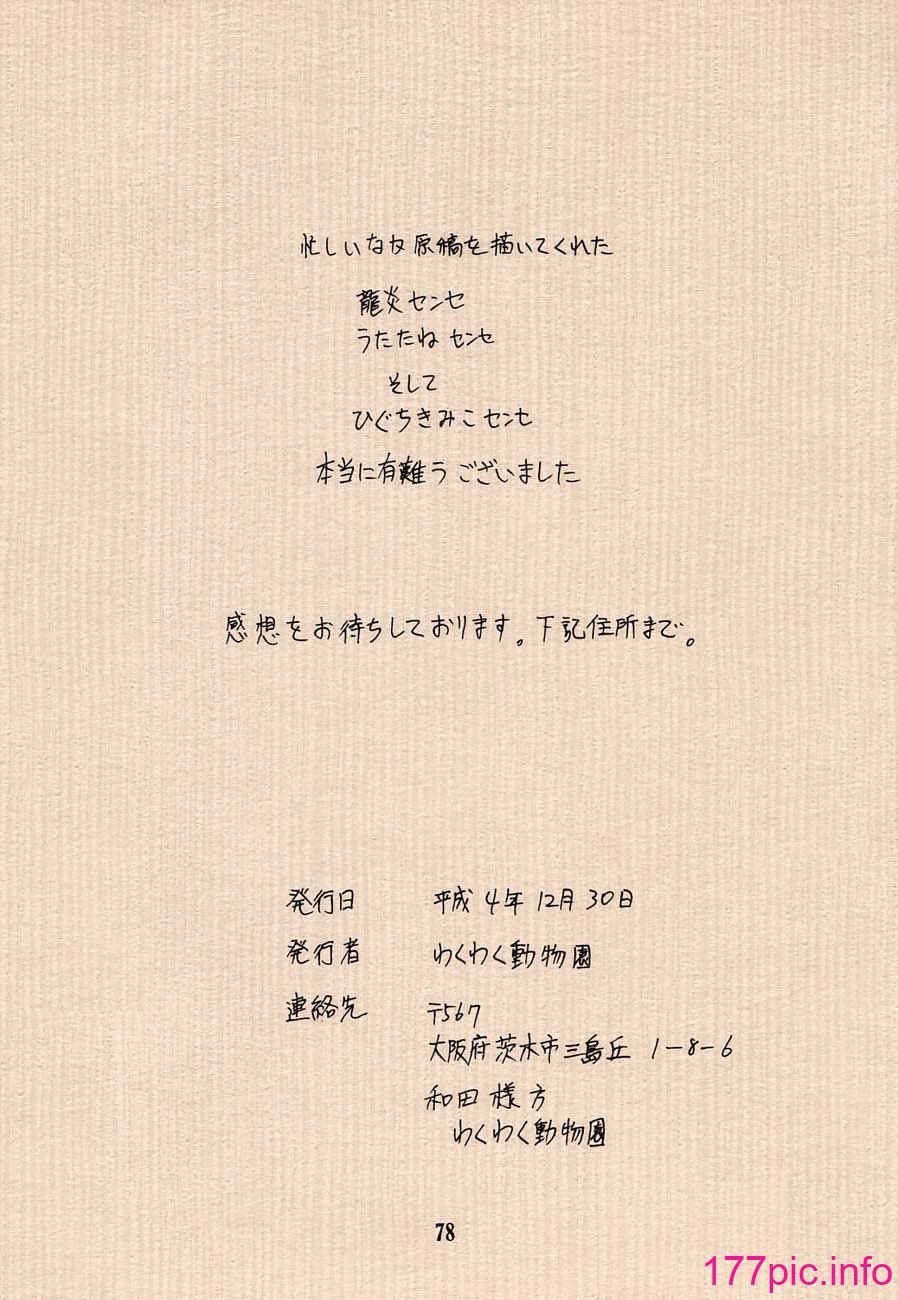 忙しいなか原稿を描いてくれた
龍炎センセ
うたたねセンセ
そして
ひぐちきみこセンセ
本当に有難うございました
感想をお待ちしております。下記住所まで。
発行日 平成4年12月30日
発行者 わくわく動物園
連絡先 〒567
大阪府茨木市三島丘 1-8-6
和田様方
わくわく動物園
78
177pic.info